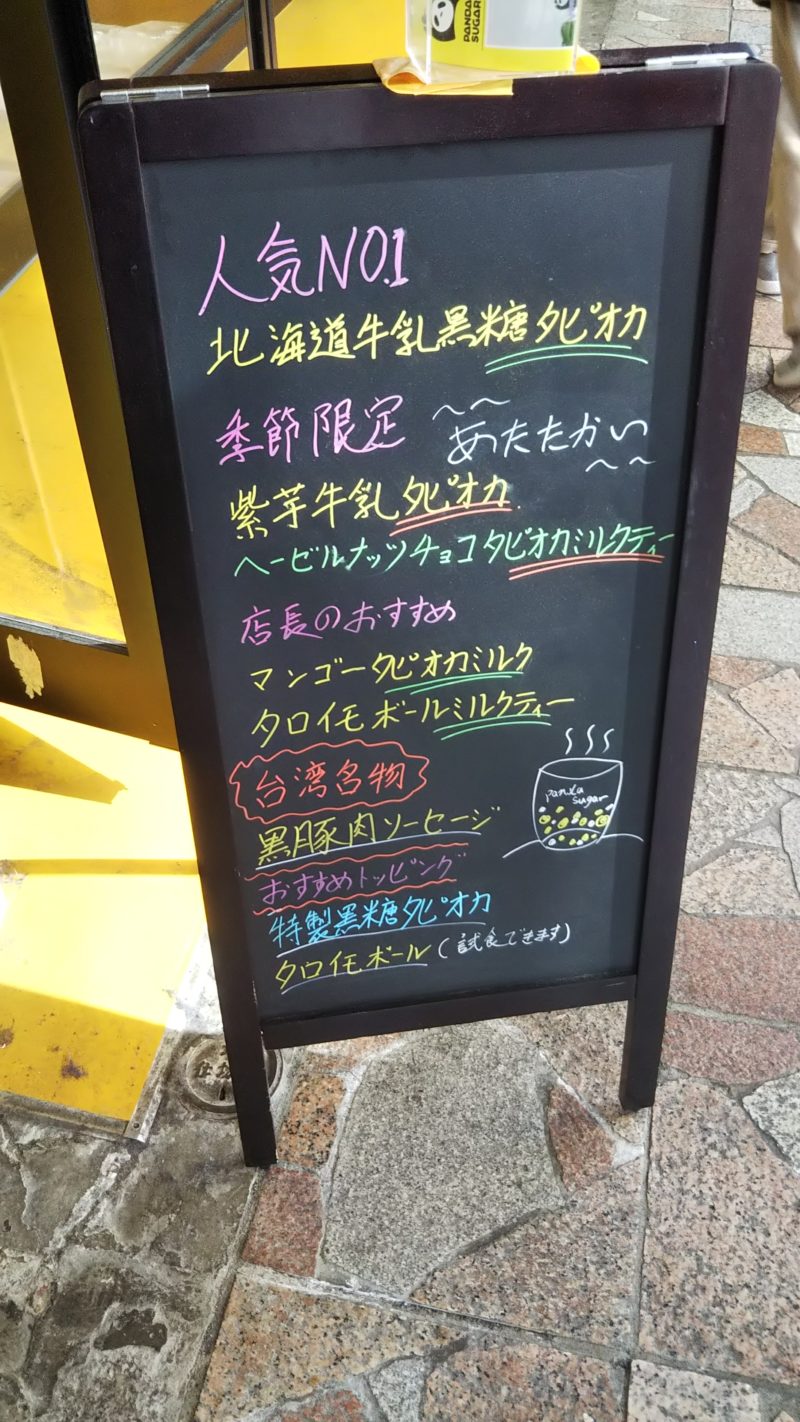 PANDA
SUGAR
人気NO.1
北海道牛乳黒糖タピオカ
季節限定 ～～あたたかい～～
紫芋牛乳タピオカ
ヘービルナッツチョコタピオカミルクティー
店長のおすすめ
マンゴータピオカミルク
タロイモボールミルクティー
台湾名物
panda
sugar
黒豚肉ソーセージ
おすすめトッピング
特製黒糖タピオカ
タロイモボール(試食できます)